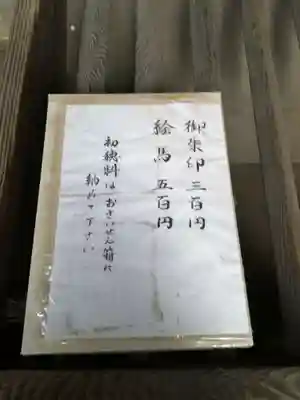 御朱印 三百円
絵馬 五百円
初穂料は おさいせん箱に
納めて下さい